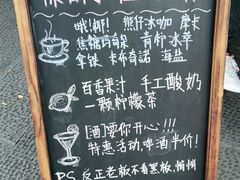 哦!虾! 熊仔冰咖 摩卡
焦糖玛奇朵 青柠冰萃
拿铁 卡布奇诺 海盐
百香果汁 手工酸奶
一颗柠檬茶
[酒]要你开心!!!
特惠活动,啤酒半价!
P.S 反正老板不看黑板,悄悄